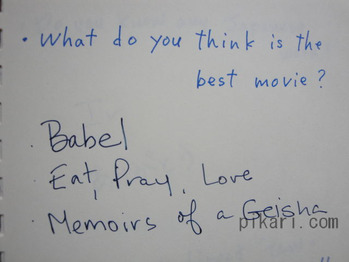 • What do you think is the
best movie?
. Babel
. Eat, Pray, Love
. Memoirs of a Geisha
pikari.com